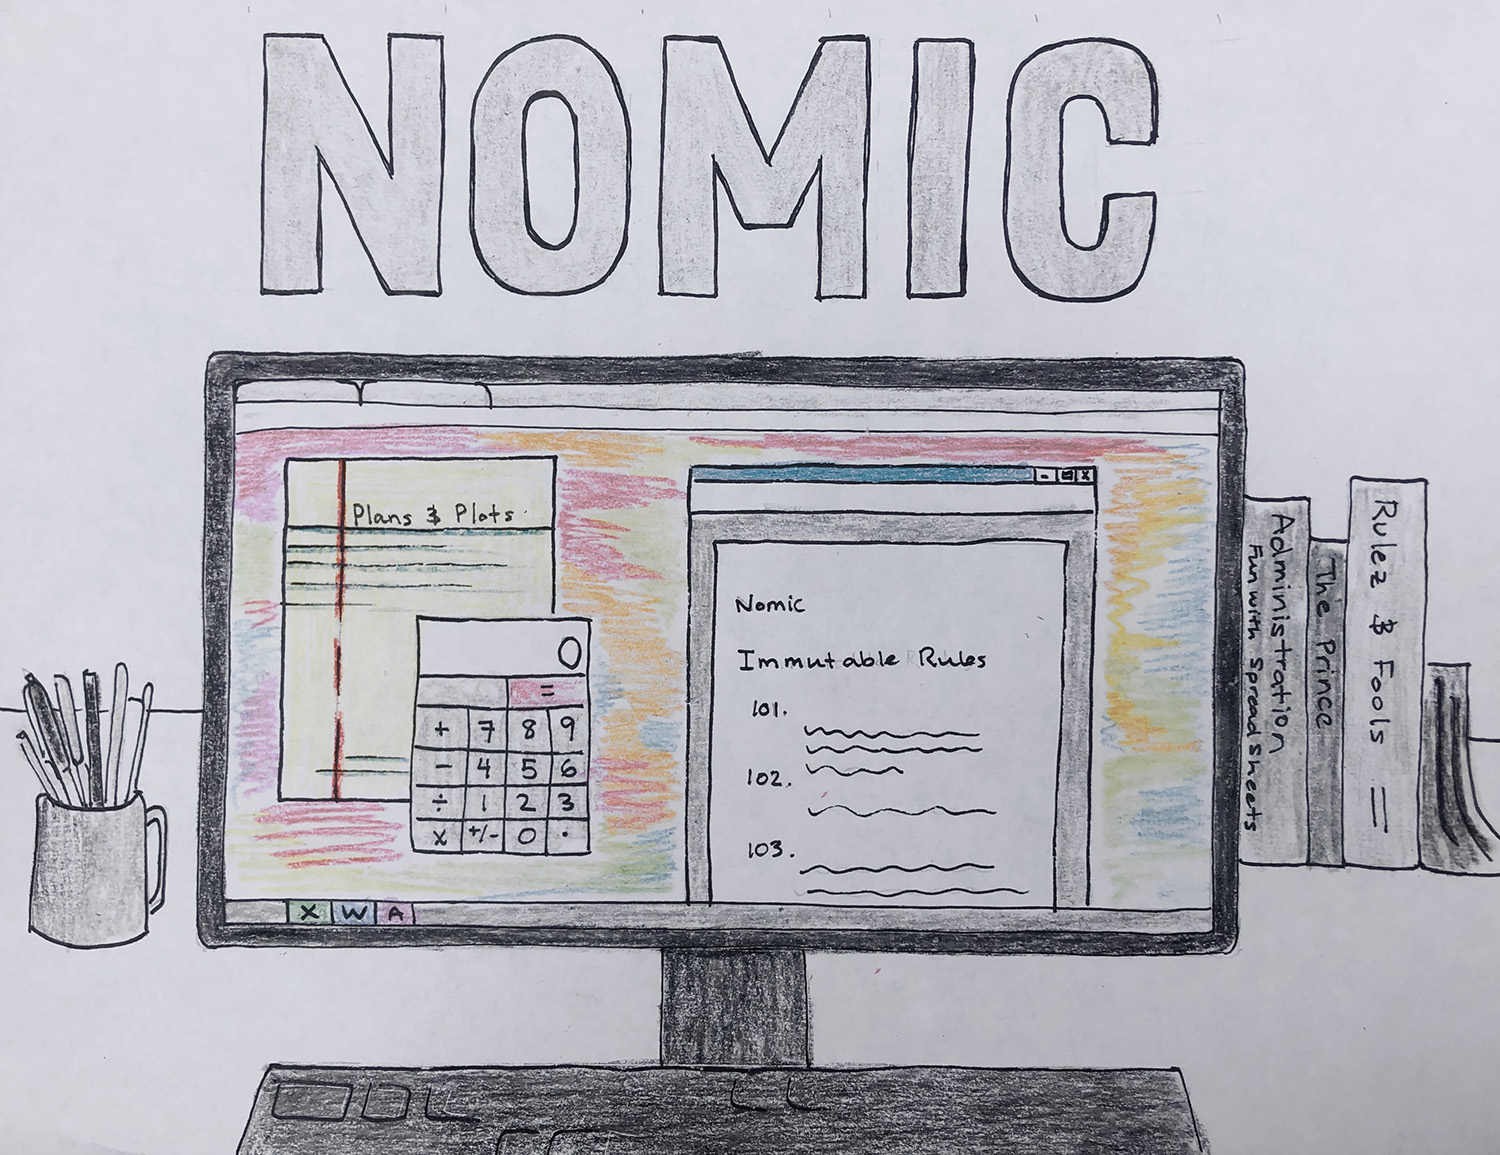 NOMIC
Plans & Plots
0
=
+ 7 8 9
- 4 5 6
÷ 1 2 3
x +/- 0 .
- x
Nomic
Immutable Rules
101.
102.
103.
X W A
Administration
Fun with Spreadsheets
The Prince
Rulez & Fools =